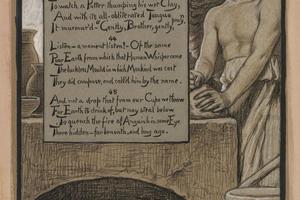 To watch a Potter thumping his wet Clay,
And with its all-obliterated Tongue
It murmur'd—"Gently, Brother, gently, pray"
44
Listen—a moment listen!—Of the same
Poor Earth from which that Human Whisper came
The luckless Mould in which Mankind was cast
They did compose, and call'd him by the name.
45
And not a drop that from our Cups we throw
For Earth to drink of, but may steal below
To quench the fire of Anguish in some Eye
There hidden—far beneath, and long ago.